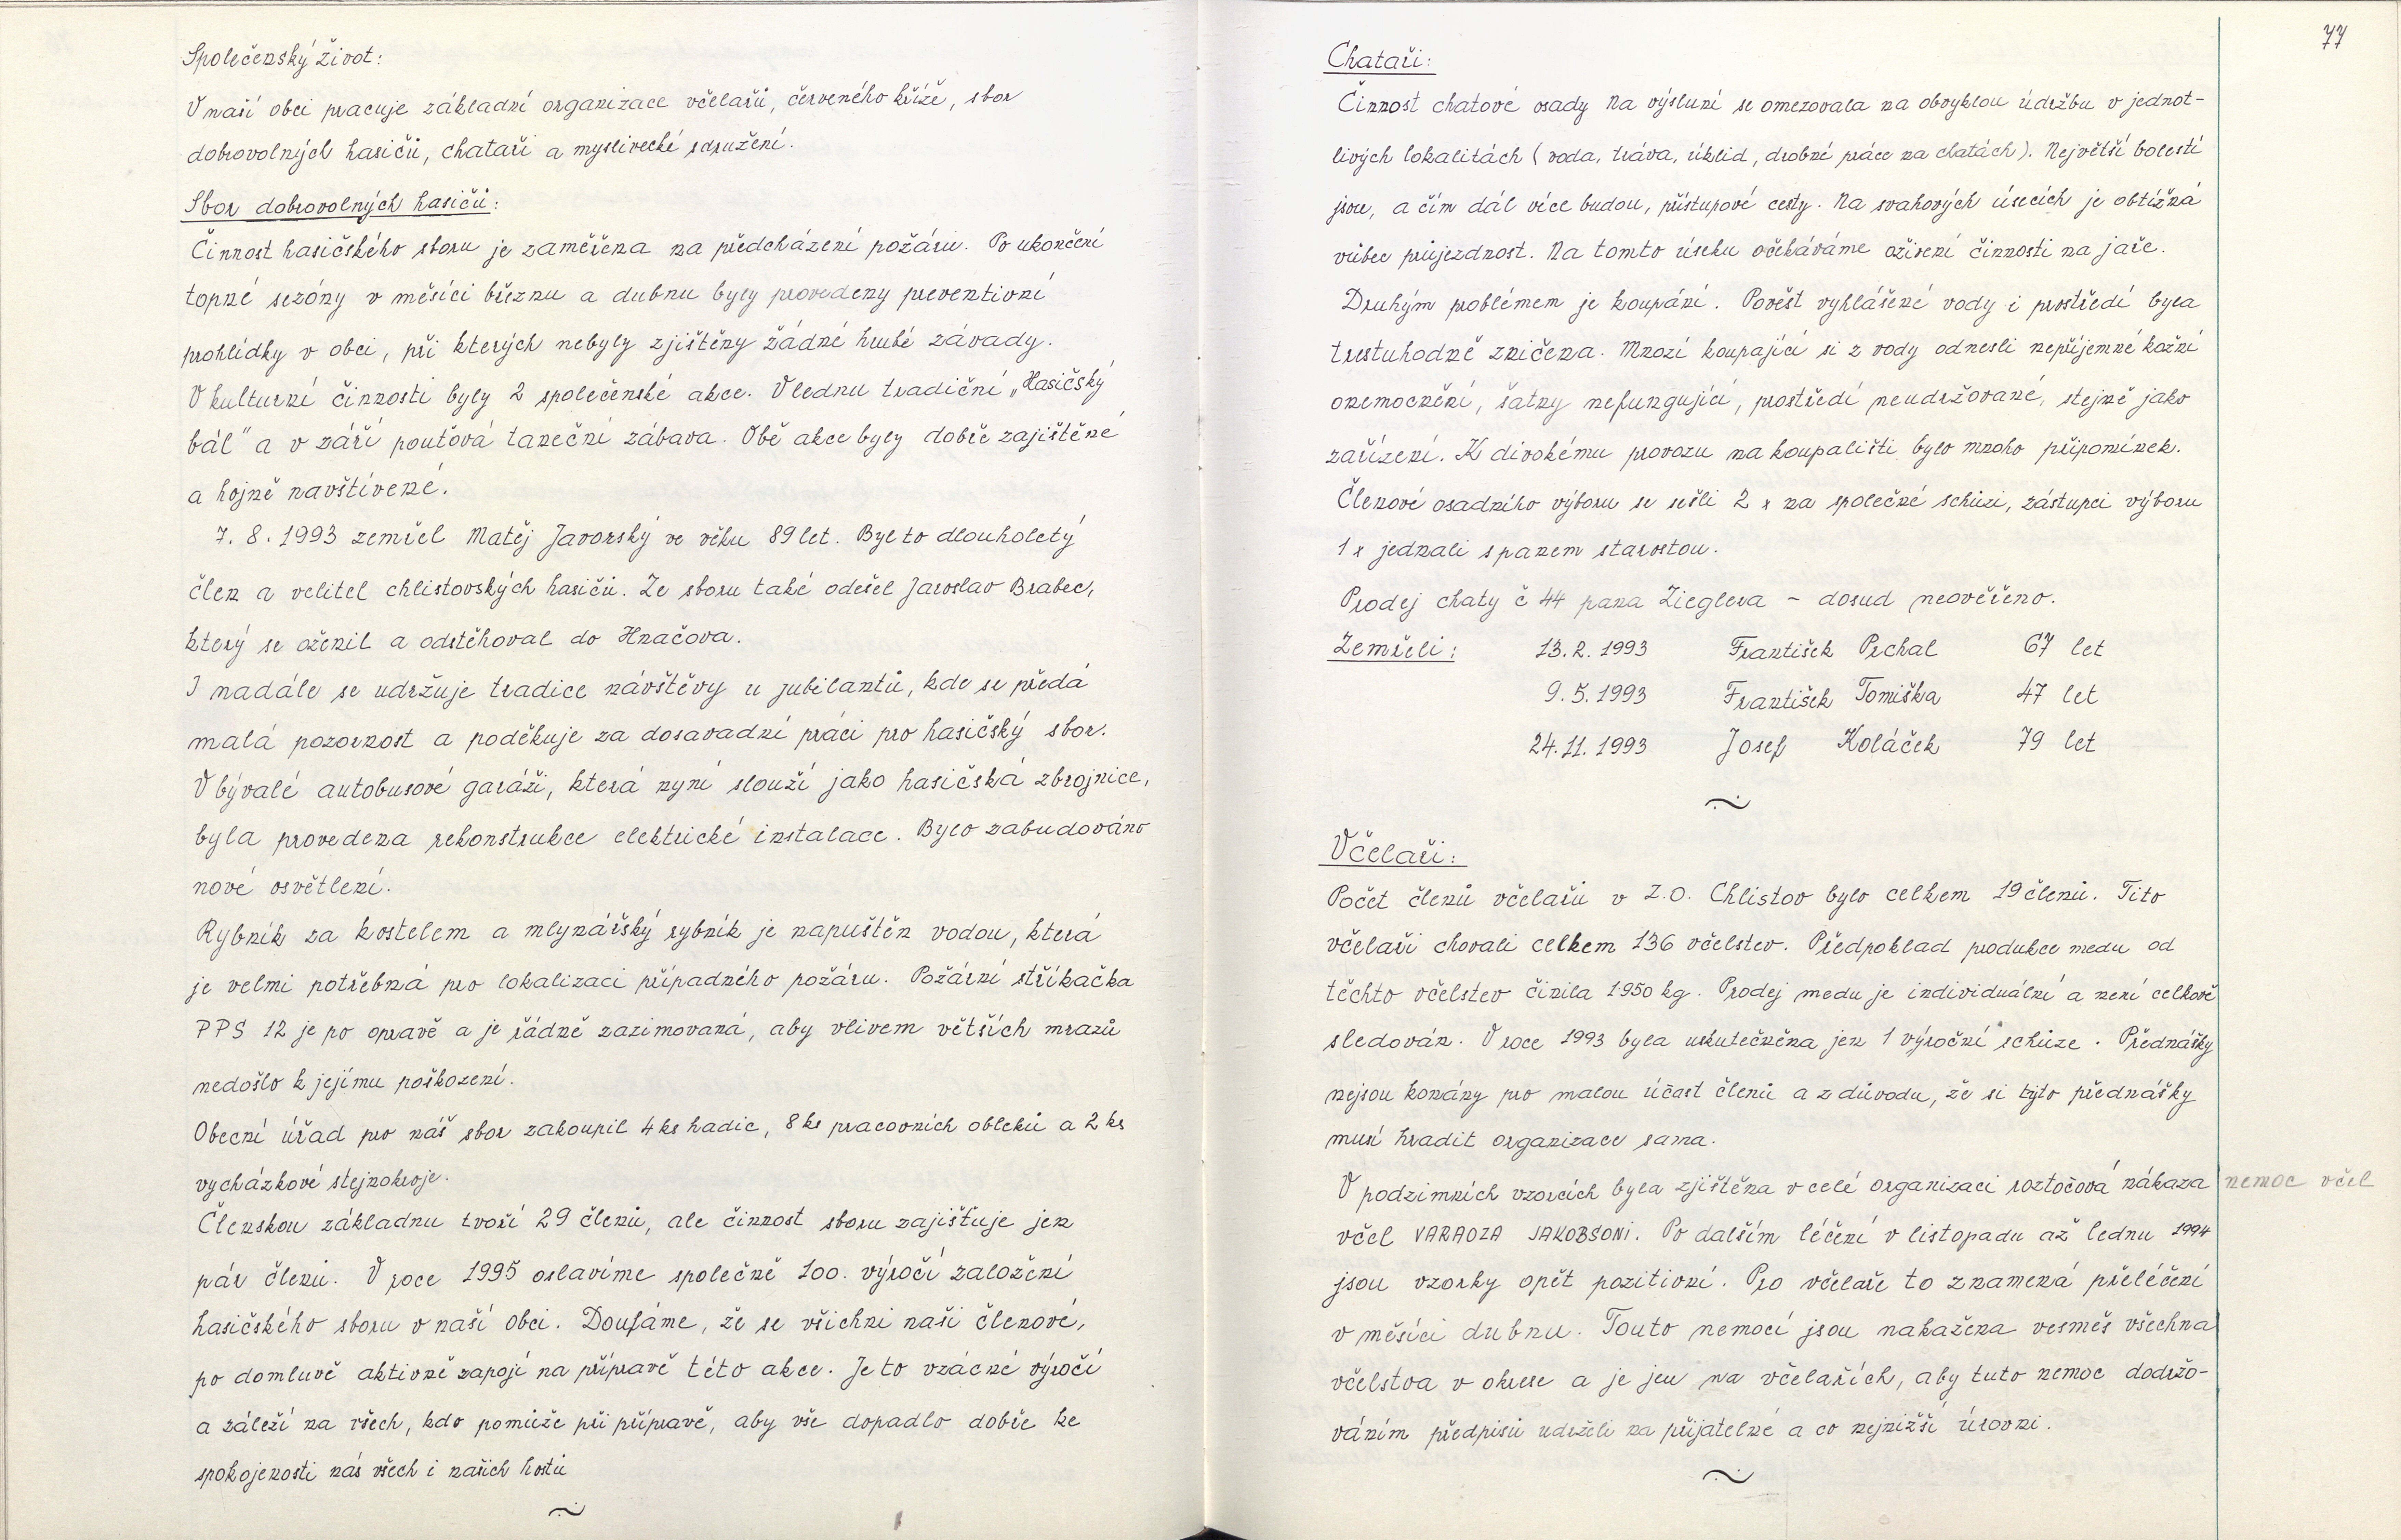 Společenský život:
V naší obci pracuje základní organizace včelařů, červeného kříže, sbor
dobrovolných hasičů, chataři a myslivecké sdružení.
Sbor dobrovolných hasičů:
Činnost hasičského sboru je zaměřena na předcházení požáru. Po ukončení
topné sezóny v měsíci březnu a dubnu byly provedeny preventivní
prohlídky v obci, při kterých nebyly zjištěny žádné hrubé závady.
V kulturní činnosti byly 2 společenské akce. V lednu tradiční „Hasičský
bál" a v září pouťová taneční zábava. Obě akce byly dobře zajištěné
a hojně navštívené.
7. 8. 1993 zemřel Matěj Javorský ve věku 89 let. Byl to dlouholetý
člen a velitel chlistovských hasičů. Ze sboru také odešel Jaroslav Brabec,
který se oženil a odstěhoval do Hnačova.
I nadále se udržuje tradice návštěvy u jubilantů, kde se předá
malá pozornost a poděkuje za dosavadní práci pro hasičský sbor.
V bývalé autobusové garáži, která nyní slouží jako hasičská zbrojnice,
byla provedena rekonstrukce elektrické instalace. Bylo zabudováno
nové osvětlení.
Rybník za kostelem a mlynářský rybník je napuštěn vodou, která
je velmi potřebná pro lokalizaci případného požáru. Požární stříkačka
PPS 12 je po opravě a je řádně zazimovaná, aby vlivem větších mrazů
nedošlo k jejímu poškození.
Obecní úřad pro náš sbor zakoupil 4 ks hadic, 8 ks pracovních obleků a 2 ks
vycházkové stejnokroje.
Členskou základnu tvoří 29 členů, ale činnost sboru zajišťuje jen
pár členů. V roce 1995 oslavíme společně 100. výročí založení
hasičského sboru v naší obci. Doufáme, že se všichni naši členové,
po domluvě aktivně zapojí na přípravě této akce. Je to vzácné výročí
a záleží na všech, kdo pomůže při přípravě, aby vše dopadlo dobře ke
spokojenosti nás všech i našich hostů
77
Chataři:
Činnost chatové osady Na výsluní se omezovala na obvyklou údržbu v jednot-
livých lokalitách (voda, tráva, úklid, drobné práce na chatách). Největší bolestí
jsou, a čím dál více budou, přístupové cesty. Na svahových úsecích je obtížná
vůbec průjezdnost. Na tomto úseku očekáváme oživení činnosti na jaře.
Druhým problémem je koupání. Pověst vyhlášené vody i prostředí byla
trestuhodně zničena. Mnozí koupající si z vody odnesli nepříjemné kožní
onemocnění, šatny nefungující, prostředí neudržované, stejně jako
zařízení. K divokému provozu na koupališti bylo mnoho připomínek.
Členové osadního výboru se sešli 2 x na společné schůzi, zástupci výboru
1 x jednali s panem starostou.
Prodej chaty č 44 pana Zieglera – dosud neověřeno.
Zemřeli: 13. 2. 1993 František Prchal 67 let
9. 5. 1993 František Tomiška 47 let
24. 11. 1993 Josef Koláček 79 let
Včelaři:
Počet členů včelařů v Z.O. Chlistov bylo celkem 19 členů. Tito
včelaři chovali celkem 136 včelstev. Předpoklad produkce medu od
těchto včelstev činila 1950 kg. Prodej medu je individuální a není celkově
sledován. V roce 1993 byla uskutečněna jen 1 výroční schůze. Přednášky
nejsou konány pro malou účast členů a z důvodu, že si tyto přednášky
musí hradit organizace sama.
V podzimních vzorcích byla zjištěna v celé organizaci roztočová nákaza nemoc včel
včel VARAOZA JAKOBSONI. Po dalším léčení v listopadu až lednu 1994
jsou vzorky opět pozitivní. Pro včelaře to znamená přeléčení
v měsíci dubnu. Touto nemocí jsou nakažena vesměs všechna
včelstva v okrese a je jen na včelařích, aby tuto nemoc dodržo-
váním předpisů udrželi na přijatelné a co nejnižší úrovni.